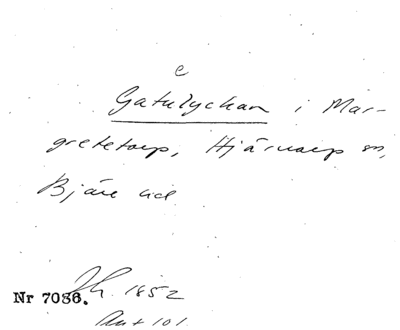 e
Gatulyckan i Mar-
gretetorp, Hjärnarp sn,
Bjäre hd
Nr 7086. 1852